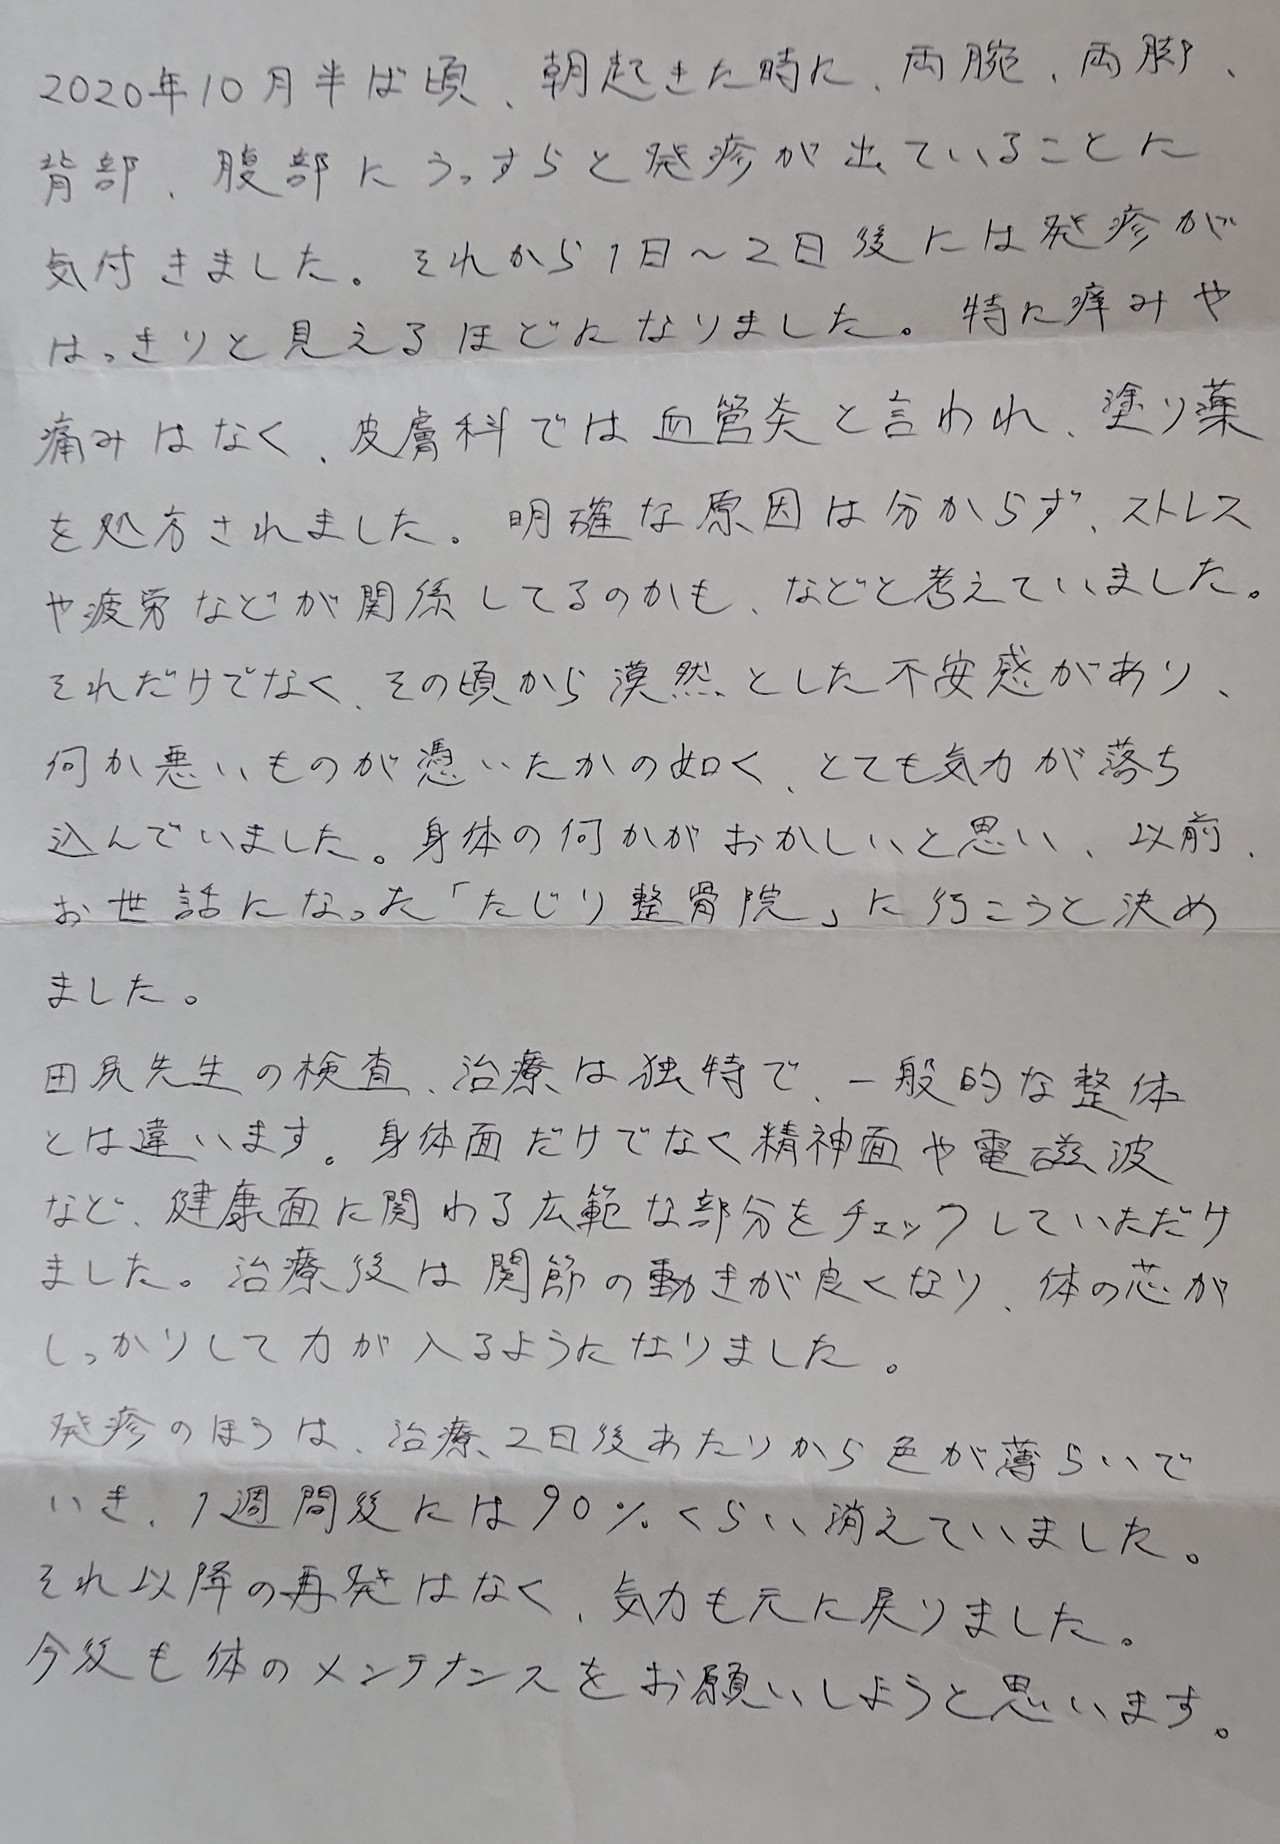 2020年10月半ば頃、朝起きた時に、両腕、両脚、
背部、腹部にうっすらと発疹が出ていることに
気付きました。それから1日～2日後には発疹が
はっきりと見えるほどになりました。特に痒みや
痛みはなく、皮膚科では血管炎と言われ、塗り薬
を処方されました。明確な原因は分からず、ストレス
や疲労などが関係してるのかも、などと考えていました。
それだけでなく、その頃から漠然とした不安感があり、
何か悪いものが憑いたかの如く、とても気力が落ち
込んでいました。身体の何かがおかしいと思い、以前、
お世話になった「たじり整骨院」に行こうと決め
ました。
田尻先生の検査、治療は独特で、一般的な整体
とは違います。身体面だけでなく精神面や電磁波
など、健康面に関わる広範な部分をチェックしていただけ
ました。治療後は関節の動きが良くなり、体の芯が
しっかりして力が入るようになりました。
発疹のほうは、治療2日後あたりから色が薄らいで
いき、1週間後には90%くらい消えていました。
それ以降の再発はなく、気力も元に戻りました。
今後も体のメンテナンスをお願いしようと思います。